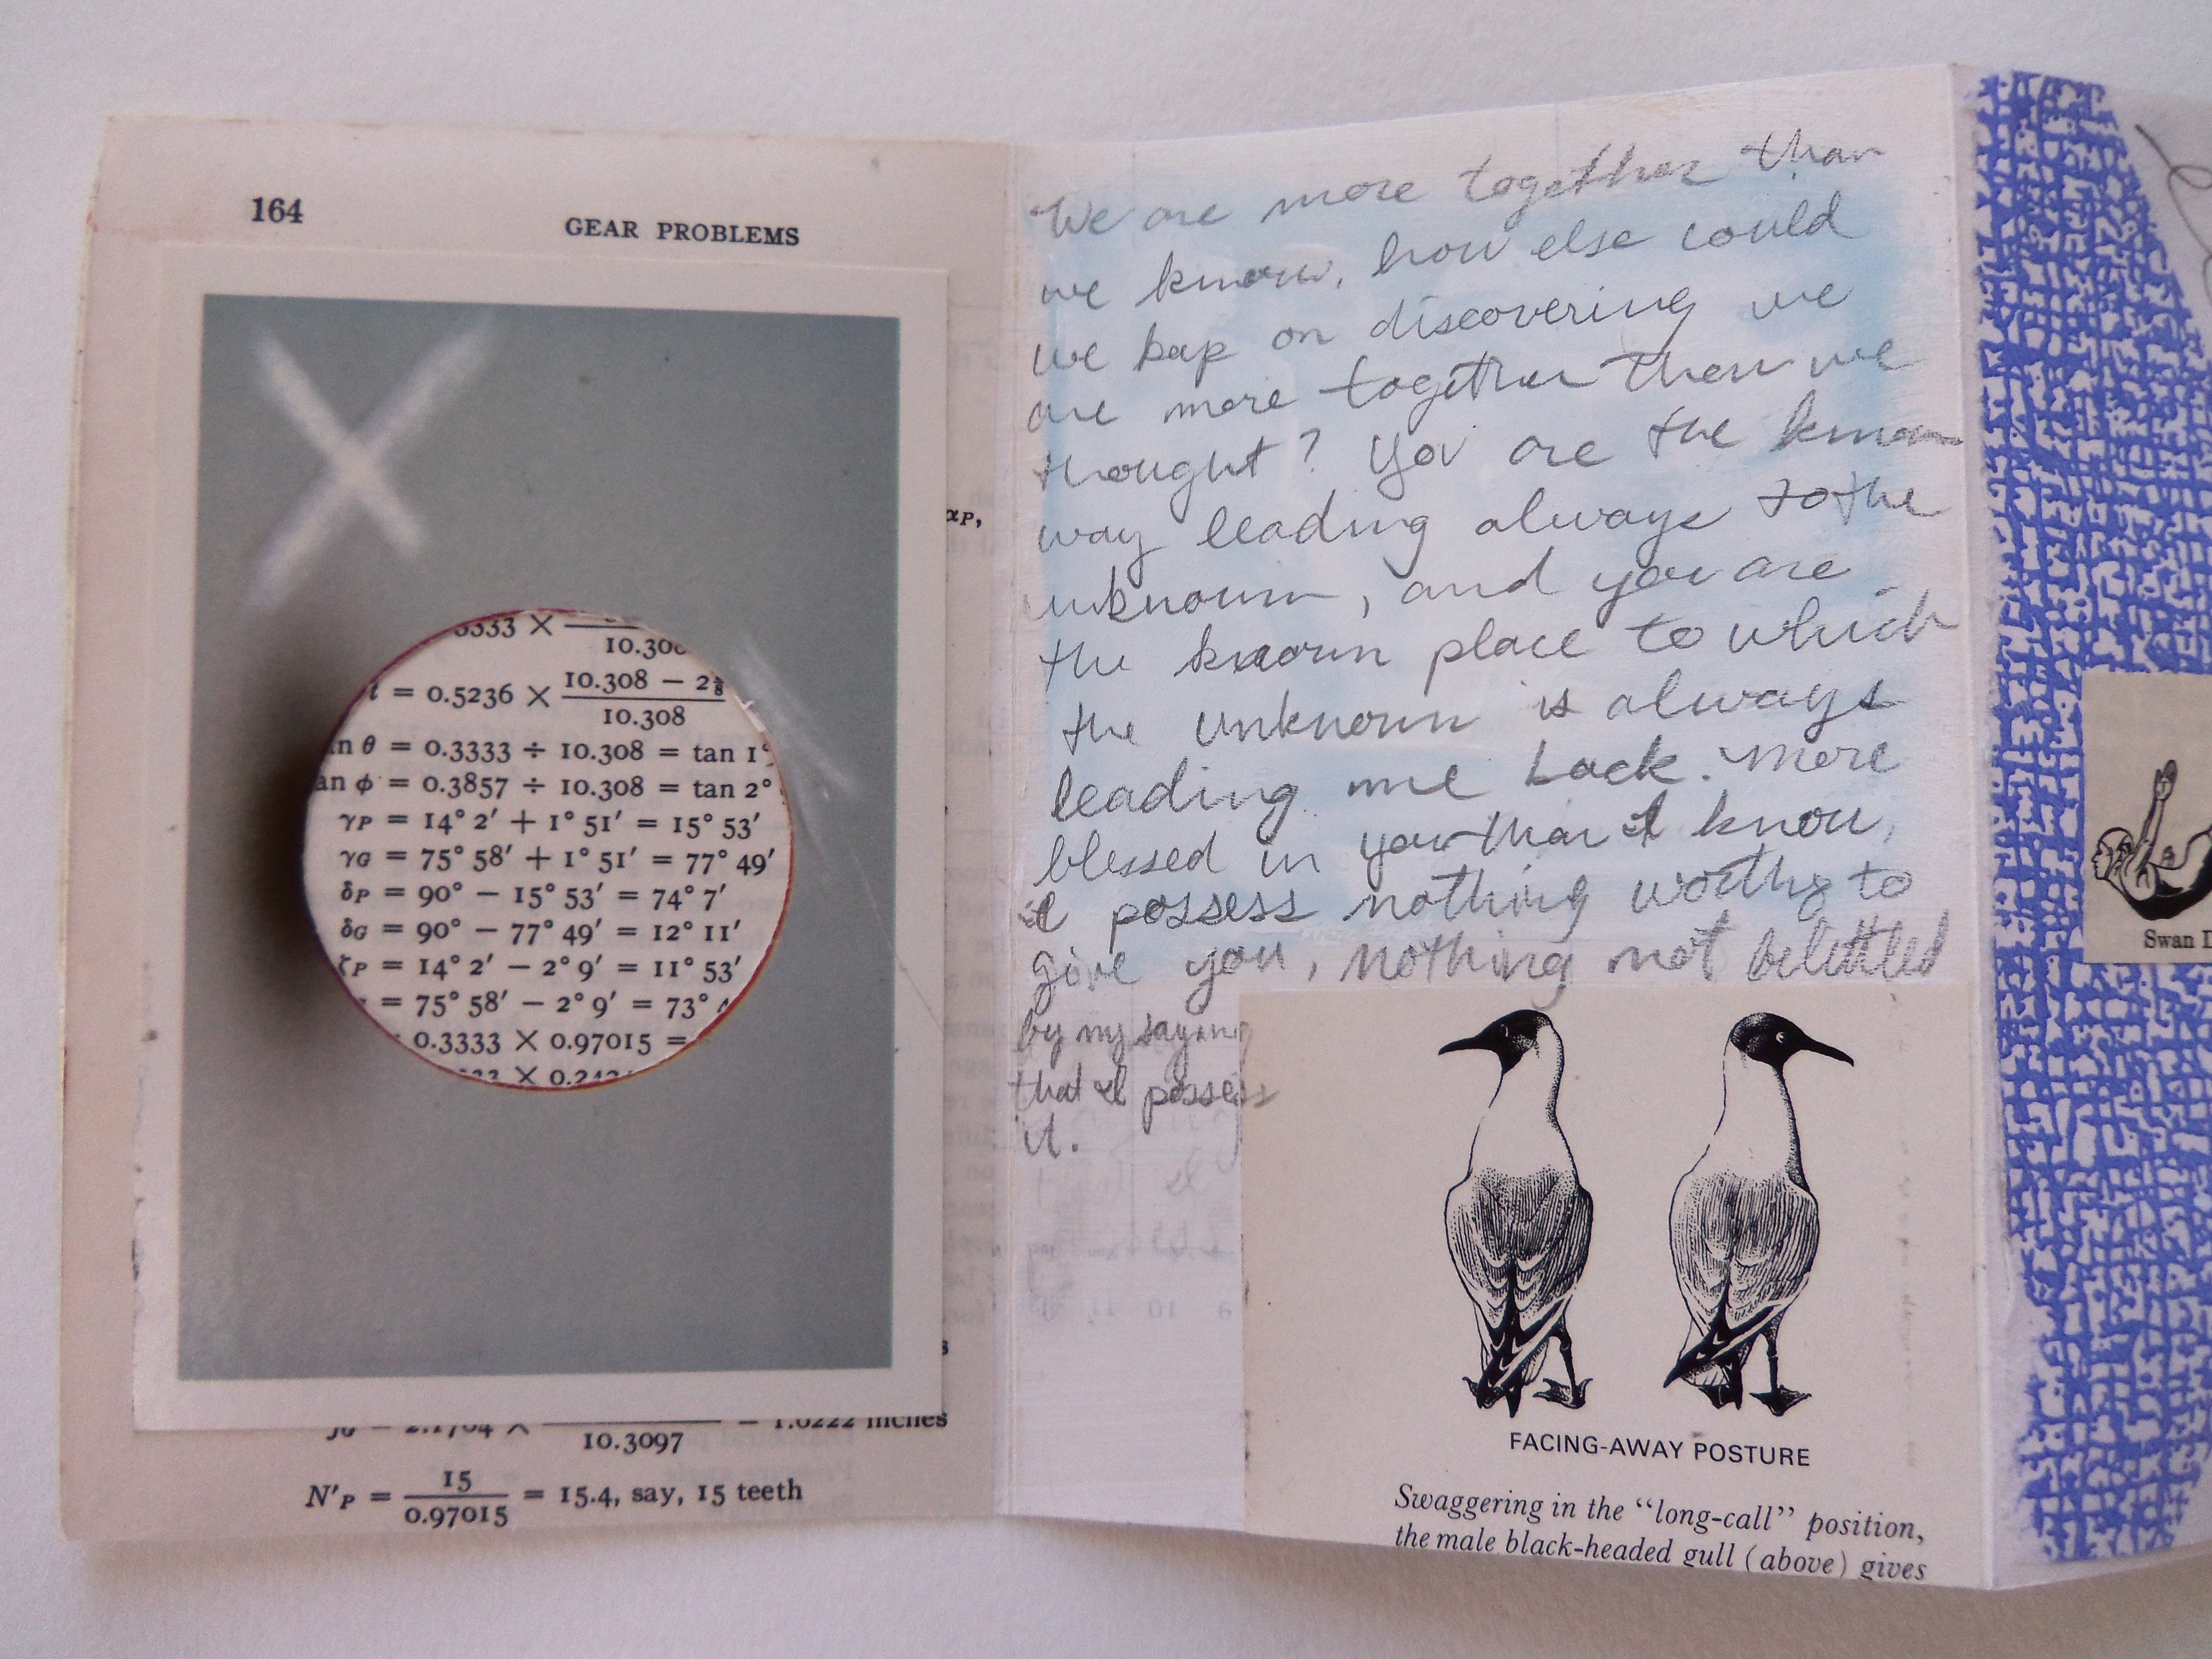 164
GEAR PROBLEMS
αP,
3333 ×
10.308
t = 0.5236 × 10.308 − 2 3/8
10.308
n θ = 0.3333 ÷ 10.308 = tan 1°
an φ = 0.3857 ÷ 10.308 = tan 2°
γP = 14° 2′ + 1° 51′ = 15° 53′
γG = 75° 58′ + 1° 51′ = 77° 49′
δP = 90° − 15° 53′ = 74° 7′
δG = 90° − 77° 49′ = 12° 11′
ζP = 14° 2′ − 2° 9′ = 11° 53′
= 75° 58′ − 2° 9′ = 73°
0.3333 × 0.97015 =
× 0.242
1.0222 inches
10.3097
N′P = 15 / 0.97015 = 15.4, say, 15 teeth
We are more together than
we know, how else could
we keep on discovering we
are more together than we
thought? You are the known
way leading always to the
unknown, and you are
the known place to which
the unknown is always
leading me back. More
blessed in you than I know,
I possess nothing worthy to
give you, nothing not belittled
by my saying
that I possess
it.
FACING-AWAY POSTURE
Swaggering in the “long-call” position,
the male black-headed gull (above) gives
Swan